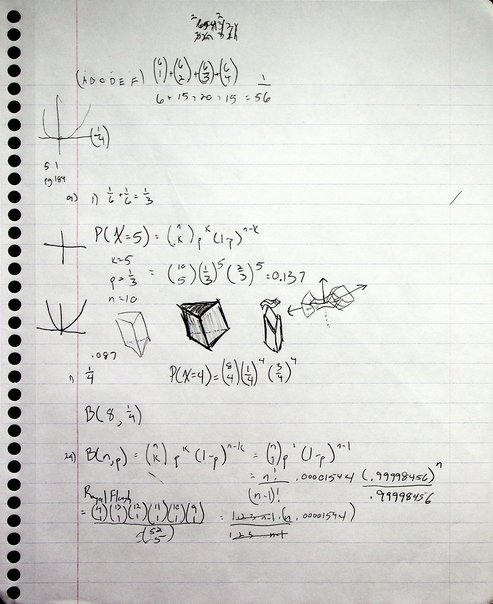 (A B C D E F) (6 1) + (6 2) + (6 3) + (6 4)
6 + 15 + 20 + 15 = 56
(1/4)
5.1
pg 184
a) 1) 1/6 + 1/6 = 1/3
P(X=5) = (n k) p^k (1-p)^n-k
k=5
p=1/3 = (10 5)(1/3)^5 (2/3)^5 = 0.137
n=10
.087
1) 1/4 P(X=4) = (8 4)(1/4)^4 (3/4)^4
B(8, 1/4)
B(n,p) = (n k) p^k (1-p)^n-k = (n 1) p^1 (1-p)^n-1
= n!/(n-1)! .00001544 (.99998456)^n/.99998456
Royal Flush
(13 1)(12 1)(11 1)(10 1)(9 1) = 1·2·3 n-1·(n .00001544)
(52 5) 1·2·3 n-1